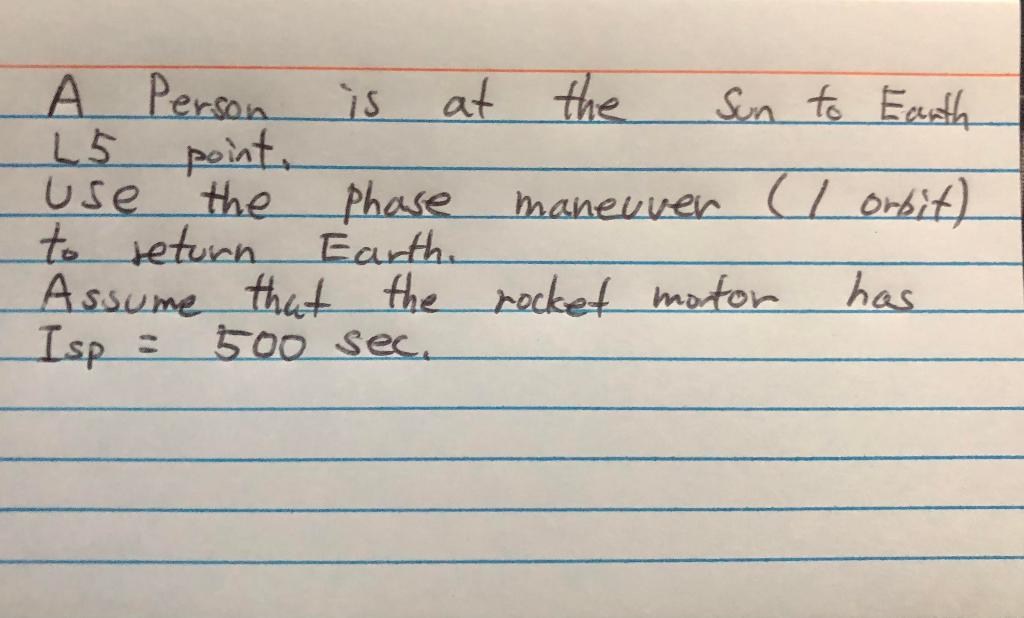 A Person is at the Sun to Earth
L5 point.
Use the phase maneuver (1 orbit)
to return Earth.
Assume that the rocket motor has
Isp = 500 sec.